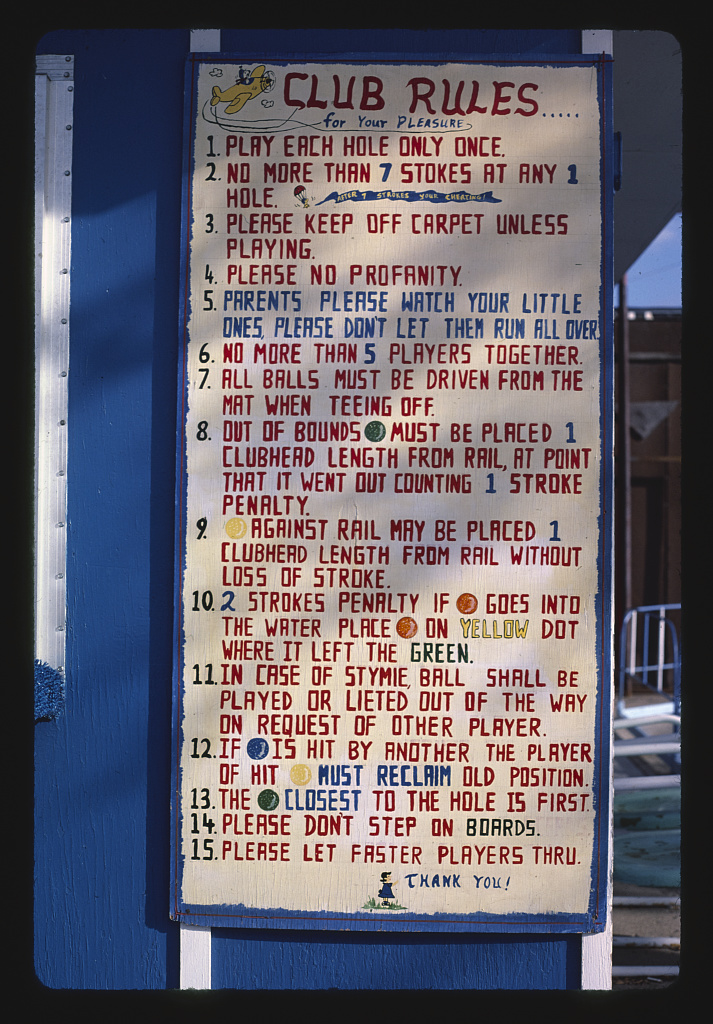 CLUB RULES.....
for Your PLEASURE
1. PLAY EACH HOLE ONLY ONCE.
2. NO MORE THAN 7 STOKES AT ANY 1
HOLE. AFTER 7 STROKES YOUR CHEATING!
3. PLEASE KEEP OFF CARPET UNLESS
PLAYING.
4. PLEASE NO PROFANITY.
5. PARENTS PLEASE WATCH YOUR LITTLE
ONES, PLEASE DON'T LET THEM RUN ALL OVER
6. NO MORE THAN 5 PLAYERS TOGETHER.
7. ALL BALLS MUST BE DRIVEN FROM THE
MAT WHEN TEEING OFF.
8. OUT OF BOUNDS MUST BE PLACED 1
CLUBHEAD LENGTH FROM RAIL, AT POINT
THAT IT WENT OUT COUNTING 1 STROKE
PENALTY.
9. AGAINST RAIL MAY BE PLACED 1
CLUBHEAD LENGTH FROM RAIL WITHOUT
LOSS OF STROKE.
10. 2 STROKES PENALTY IF GOES INTO
THE WATER PLACE ON YELLOW DOT
WHERE IT LEFT THE GREEN.
11. IN CASE OF STYMIE, BALL SHALL BE
PLAYED OR LIETED OUT OF THE WAY
ON REQUEST OF OTHER PLAYER.
12. IF IS HIT BY ANOTHER THE PLAYER
OF HIT MUST RECLAIM OLD POSITION.
13. THE CLOSEST TO THE HOLE IS FIRST.
14. PLEASE DON'T STEP ON BOARDS.
15. PLEASE LET FASTER PLAYERS THRU.
THANK YOU!